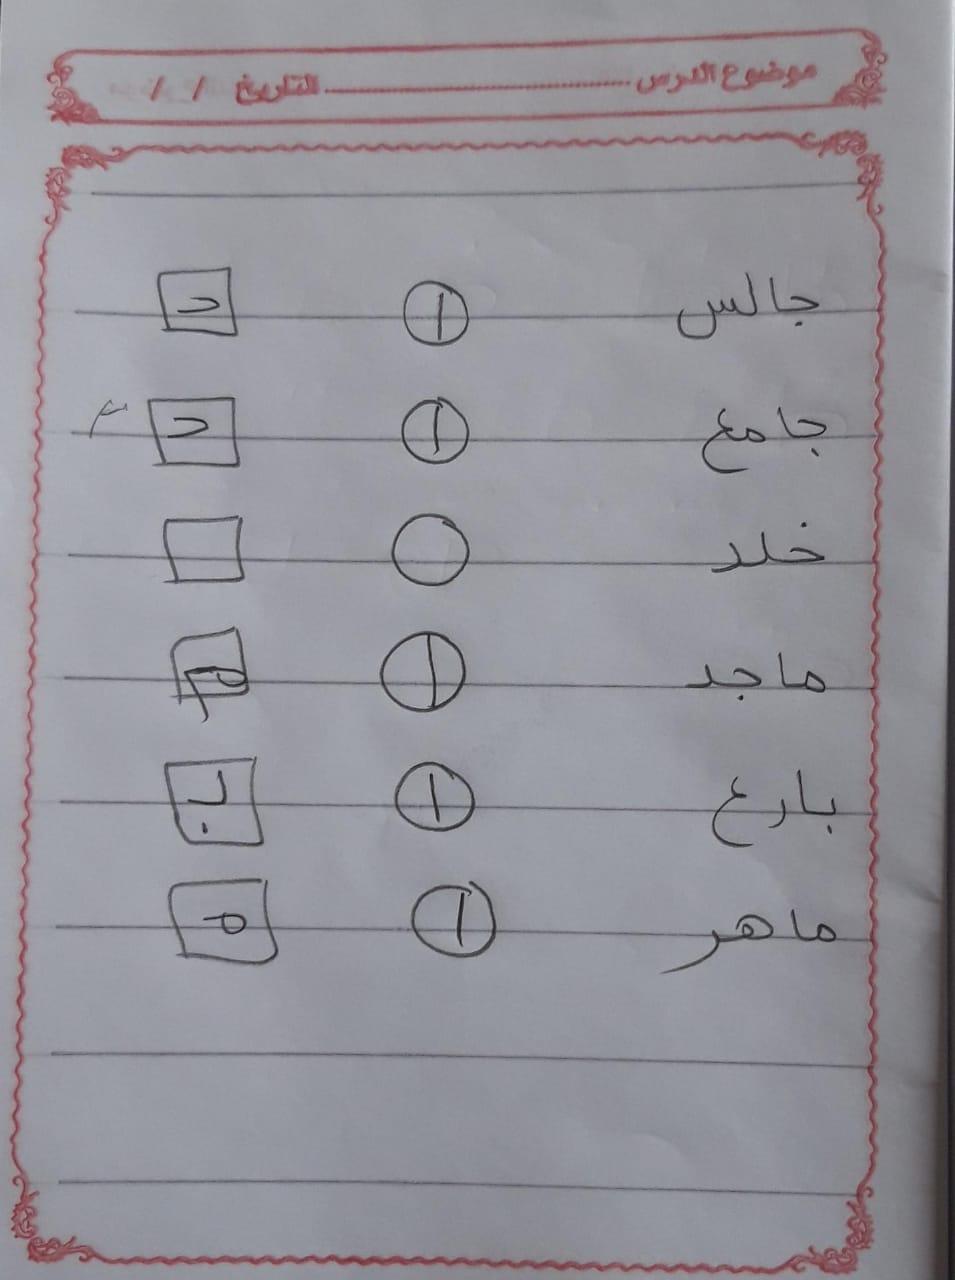 موضوع الدرس ........................ التاريخ / /
جالس ا د
جامع ا د
خلد
ماجد ا م
بارع ا ب
ماهر ا م